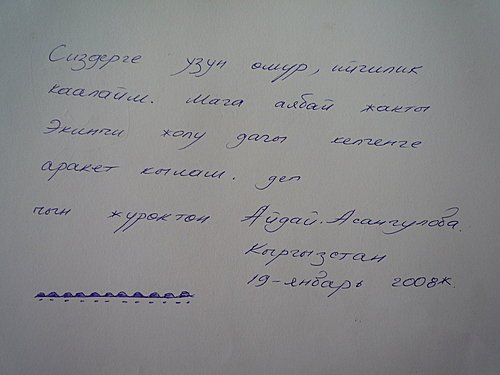 Сиздерге узун омур, ийгилик
каалайм. Мага аябай жакты
Экинчи жолу дагы келгенге
аракет кылам. деп
чын журоктон Айдай. Асангулова.
Кыргызстан
19-январь 2008ж.